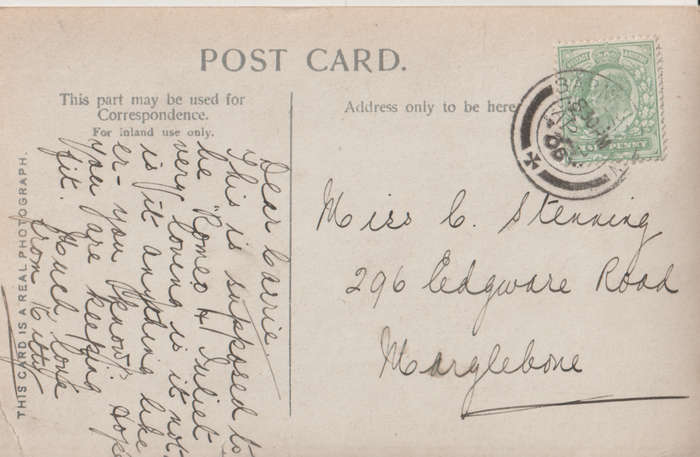 POST CARD.
This part may be used for
Correspondence.
For inland use only.
Address only to be here
THIS CARD IS A REAL PHOTOGRAPH.
Dear Carrie.
This is supposed to
be "Romeo & Juliet
very loving is it not.
is it anything like
er- you know? Hope
you are keeping
fit. Much love
from Kitty
Miss C. Stenning
296 Edgware Road
Marylebone
06
PENNY